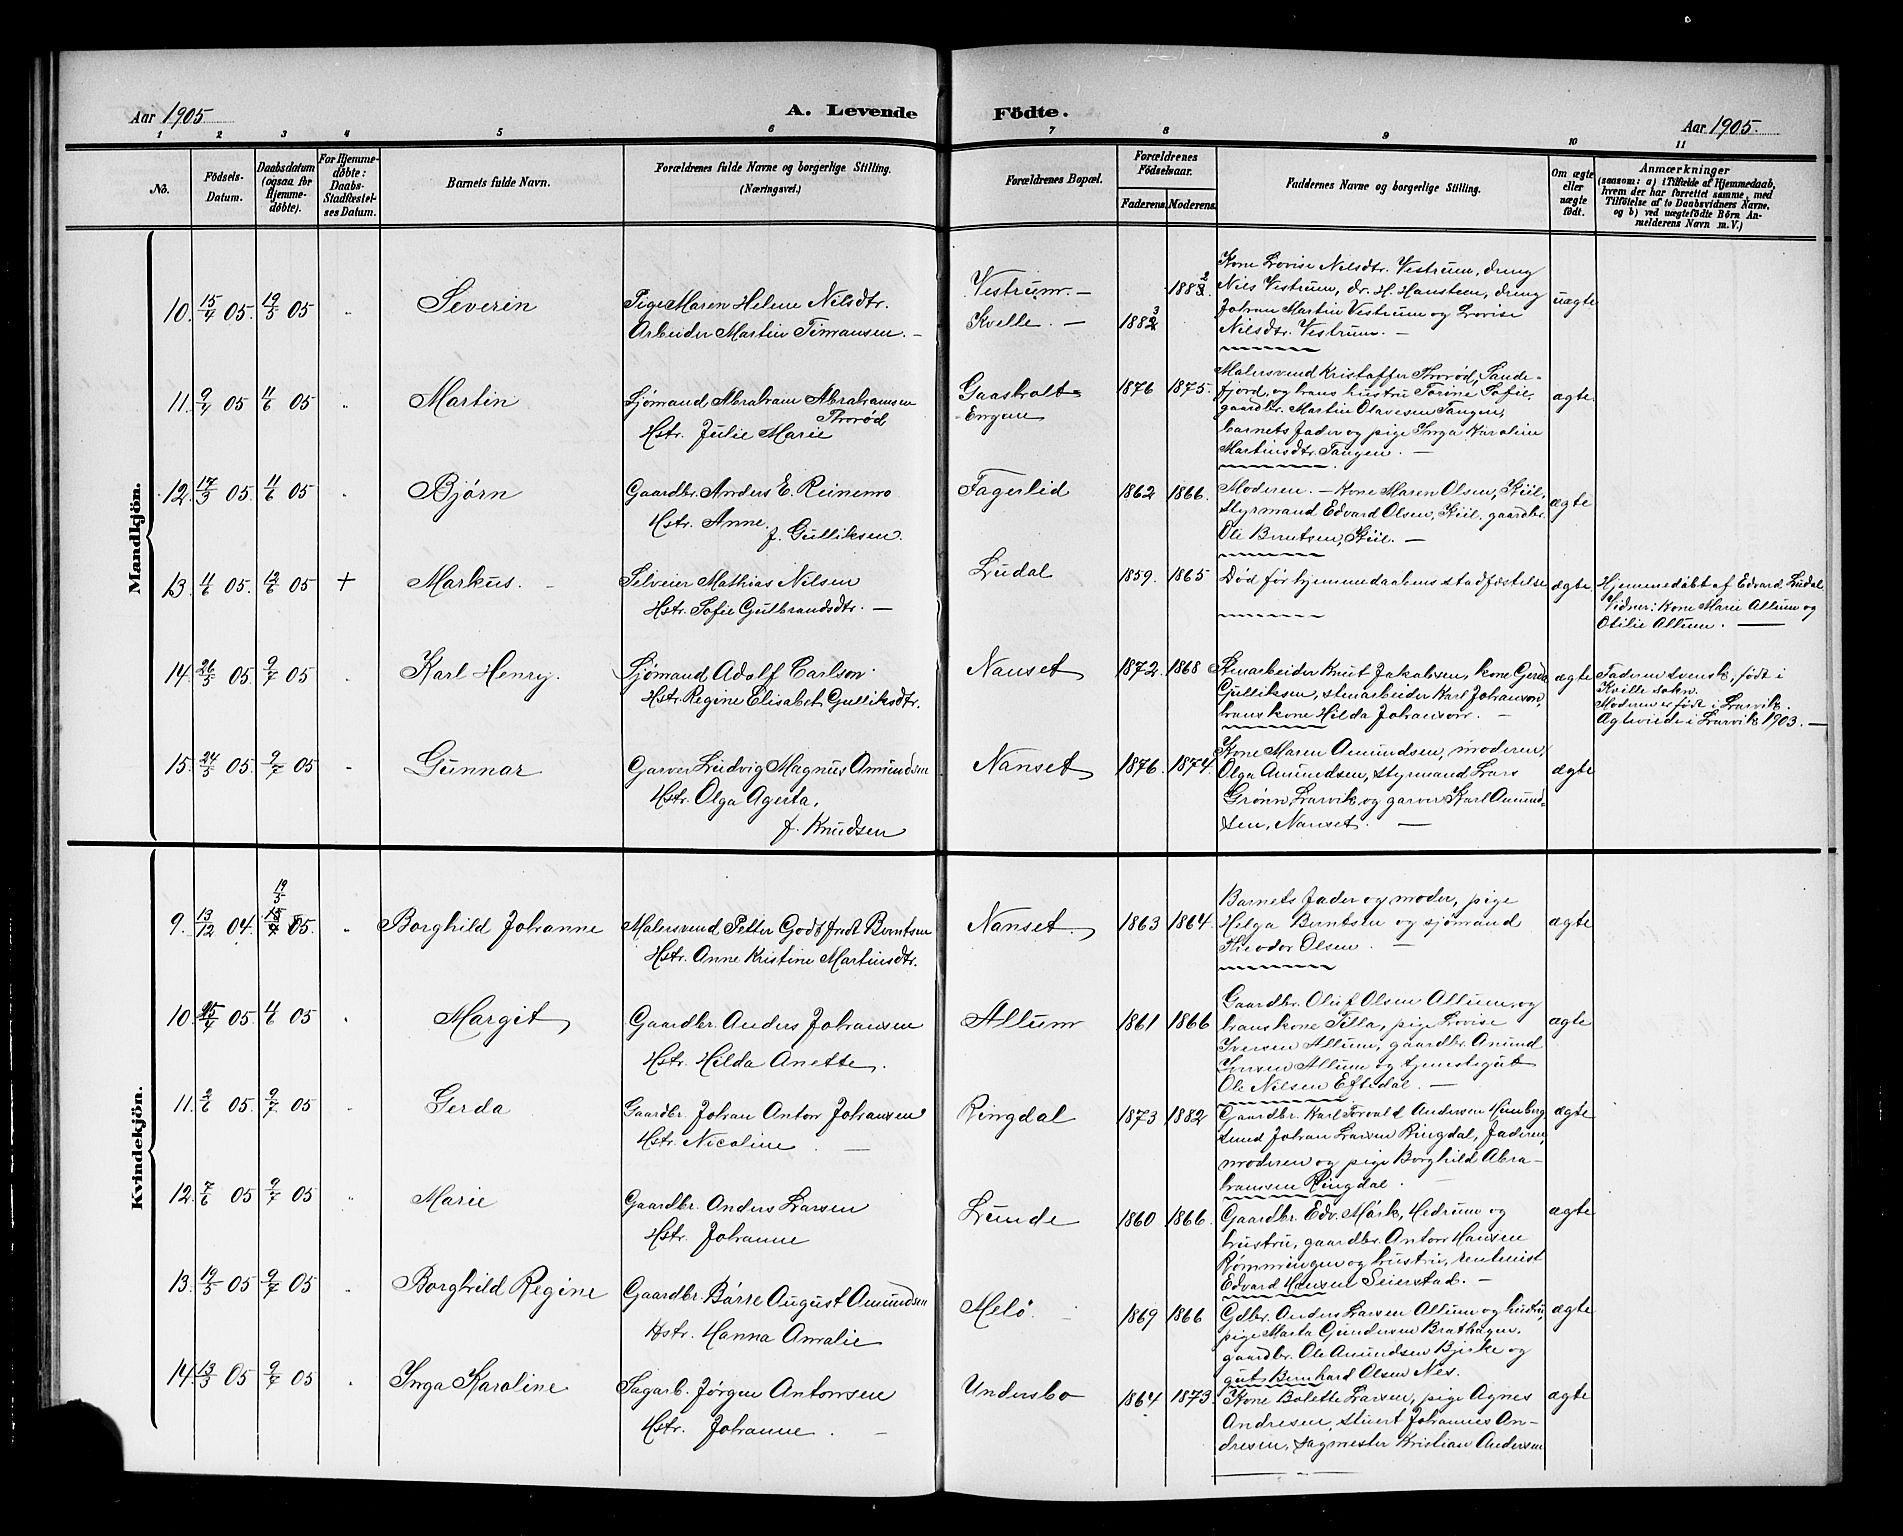 Aar 1905
A. Levende Födte.
Aar 1905.
1 2 3 4 5 6 7 8 9 10 11
No.
Födsels-
Datum.
Daabsdatum
(ogsaa for
Hjemme-
döbte).
For Hjemme-
döbte:
Daabs-
Stadfæstel-
ses Datum.
Barnets fulde Navn.
Forældrenes fulde Navne og borgerlige Stilling.
(Næringsvei.)
Forældrenes Bopæl.
Forældrenes
Födselsaar.
Faderens. Moderens.
Faddernes Navne og borgerlige Stilling.
Om ægte
eller
uægte
födt.
Anmærkninger
(saasom: a) i Tilfælde af Hjemmedaab,
hvem der har forrettet samme, med
Tilföielse af to Daabsvidners Navne,
og b) ved uægtefödte Börn An-
melderens Navn m. V.)
Mandkjön.
10. 15/4 05. 19/5 05 „ Severin
Pige Maren Helene Nilsdtr.
Arbeider Martin Timansen. —
Vestrum. —
Kvelle. —
1882
1883
Kone Lovise Nilsdtr. Vestrum, dreng
Nils Vestrum, dr. H. Hansteen, dreng
Johan Martin Vestrum og Lovise
Nilsdtr. Vestrum. —
uægte
11. 9/4 05 11/6 05 „ Martin
Sjømand Abraham Abrahamsen
Thorød
Hstr. Julie Marie
Gaasholt-
Engene
1876 1875.
Malersvend Kristoffer Thorød, Sande-
fjord, og hans hustru Torine Sofie,
gaardbr. Martin Olavesen Tangen,
barnets fader og pige Inga Karoline
Martinsdtr. Tangen. —
ægte.
12. 17/3 05. 11/6 05 „ Bjørn
Gaardbr. Anders E. Reinemo
Hstr. Anne,
f. Gulliksen.
Fagerlid
1862 1866.
Moderen. — Kone Maren Olsen, Kiil,
styrmand Edvard Olsen, Kiil, gaardbr.
Ole Berntsen, Kiil. —
ægte
13. 4/6 05. 12/6 05 + Markus. —
Selveier Mathias Nilsen
Hstr. Sofie Gulbrandsdtr. —
Ludal
1859. 1865
Død før hjemmedaabens stadfæstelse
ægte
Hjemmedøbt af Edvard Ludal
Vidner: Kone Marie Allum og
Otilie Allum. —
14. 26/5 05. 9/7 05 „ Karl Henry.
Sjømand Adolf Carlson.
Hstr. Regine Elisabet Gulliksdtr.
Nanset
1872 1868
Stenarbeider Knut Jakobsen, kone Gerda
Gulliksen, stenarbeider Karl Johanson,
hans kone Hilda Johanson. —
ægte
Faderen svensk, født i
Kville sokn.
Moderen er født i Larvik.
Ægteviede i Larvik 1903. —
15. 24/5 05. 9/7 05 „ Gunnar
Garver Ludvig Magnus Amundsen
Hstr. Olga Agesta,
f. Knudsen
Nanset
1876. 1874.
Kone Maren Amundsen, moderen,
Olga Amundsen, styrmand Lars
Grønn Larvik og garver Karl Amund-
sen, Nanset. —
ægte
Kvindekjön.
9. 13/12 04. 19/5 05. „ Borghild Johanne
Malersvend Petter Godtfredt Berntsen
Hstr. Anne Kristine Martinsdtr.
Nanset.
1863 1864.
Barnets fader og moder, pige
Helga Berntsen og sjømand
Theodor Olsen. —
ægte
10. 25/4 05. 11/6 05 „ Margit
Gaardbr. Anders Johansen
Hstr. Hilda Anette.
Allum
1861 1866
Gaardbr. Oluf Olsen Allum og
hans kone Tilla, pige Lovise
Iversen Allum, gaardbr. Amund
Iversen Allum og tjenestegut
Ole Nilsen Eftedal. —
ægte
11. 2/6 05. 9/7 05 „ Gerda
Gaardbr. Johan Anton Johansen
Hstr. Nicoline. —
Ringdal
1873 1882
Gaardbr. Karl Torvald Andersen Himberg
smed Johan Larsen Ringdal, faderen,
moderen og pige Borghild Abra-
hamsen Ringdal.
ægte
12. 7/6 05 9/7 05 „ Marie
Gaardbr. Anders Larsen
Hstr. Johanne
Lunde
1860 1866.
Gaardbr. Edv. Mørk, Hedrum og
hustru, gaardbr. Anton Hansen
Rømmingen og hustru, rentenist
Edvard Hansen Seierstad. —
ægte
13. 19/5 05 9/7 05 „ Borghild Regine
Gaardbr. Børre August Amundsen
Hstr. Hanna Amalie
Melø.
1869 1866
Gdbr. Anders Larsen Allum og hustru,
pige Marta Gundersen Brathagen,
gaardbr. Ole Amundsen Bjerke og
gut Bernhard Olsen Nes.
ægte
14. 13/3 05 9/7 05 „ Inga Karoline
Sagarb. Jørgen Antonsen
Hstr. Johanne. —
Undersbo
1864 1873.
Kone Bolette Larsen, pige Agnes
Andresen, stivert Johannes An-
dresen, sagmester Kristian Andersen
ægte